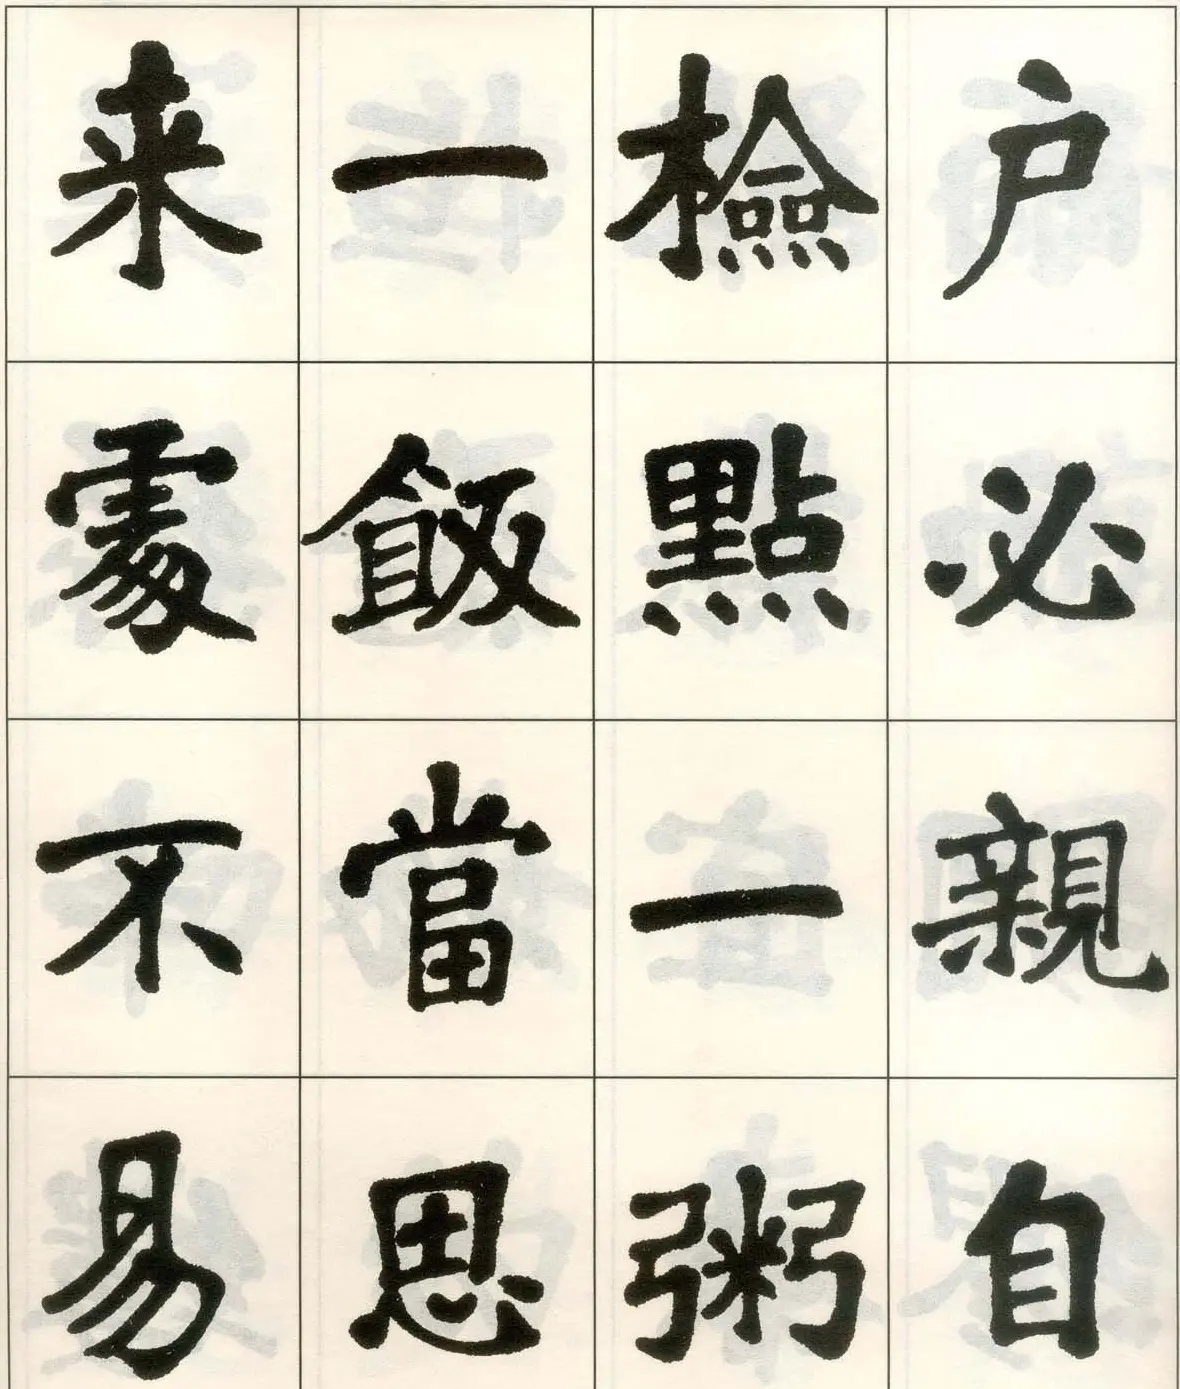 户必親自
檢點一粥
一飯當思
来處不易